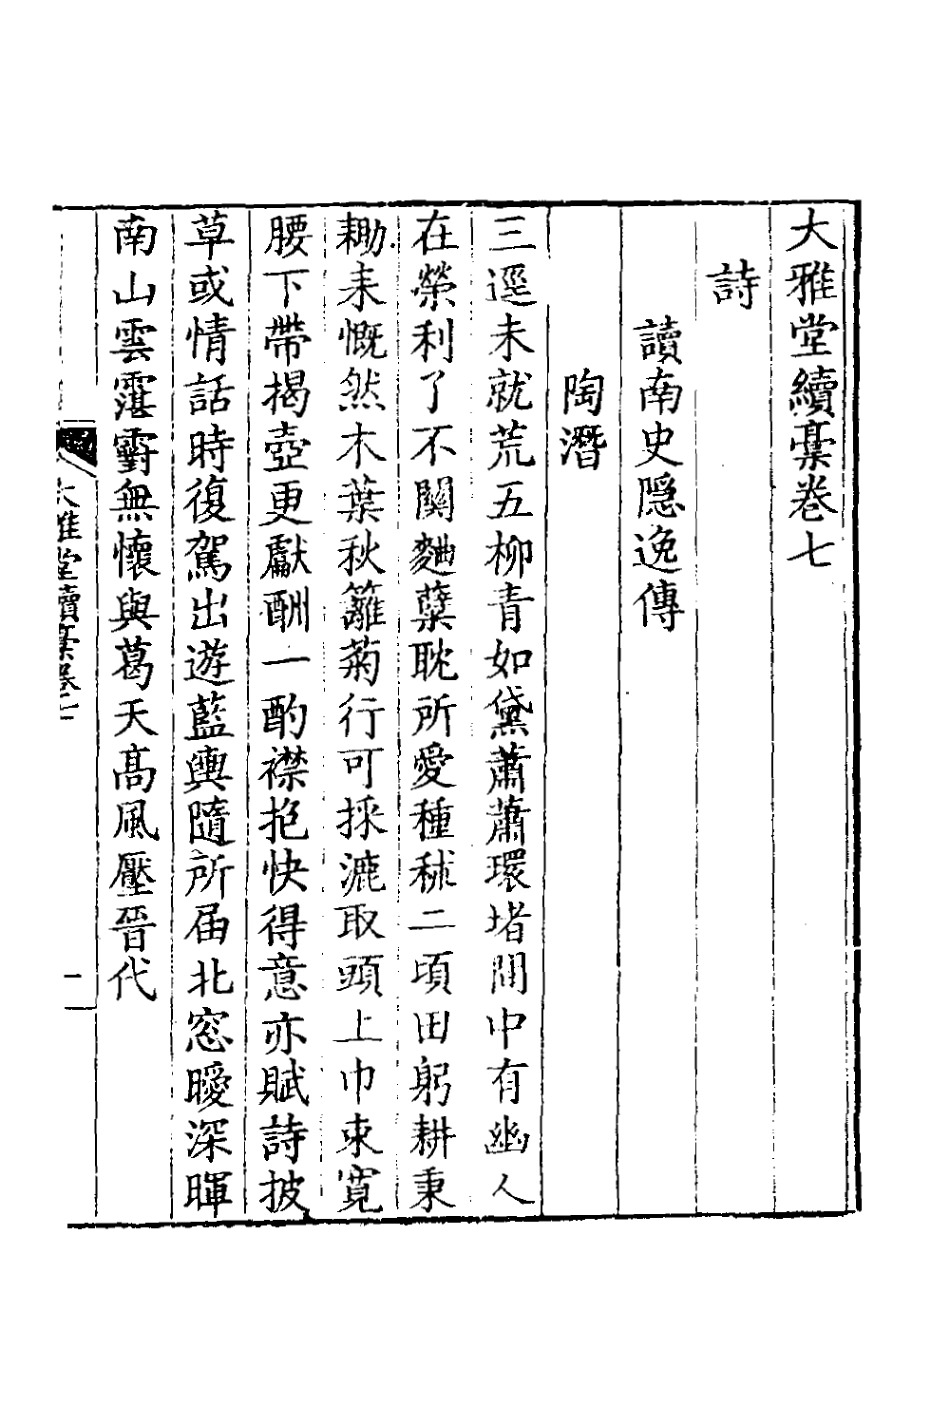 大雅堂續稾卷七
詩
讀南史隱逸傳
陶潛
三逕未就荒五柳青如黛蕭蕭環堵間中有幽人
在榮利了不關麯蘖耽所愛種秫二頃田躬耕秉
耡耒慨然木葉秋籬菊行可採漉取頭上巾束寬
腰下帶揭壺更獻酬一酌襟抱快得意亦賦詩披
草或情話時復駕出遊藍輿隨所届北窓曖深暉
南山雲霮䨴無懷與葛天髙風壓晉代
大雅堂續稾卷七
一